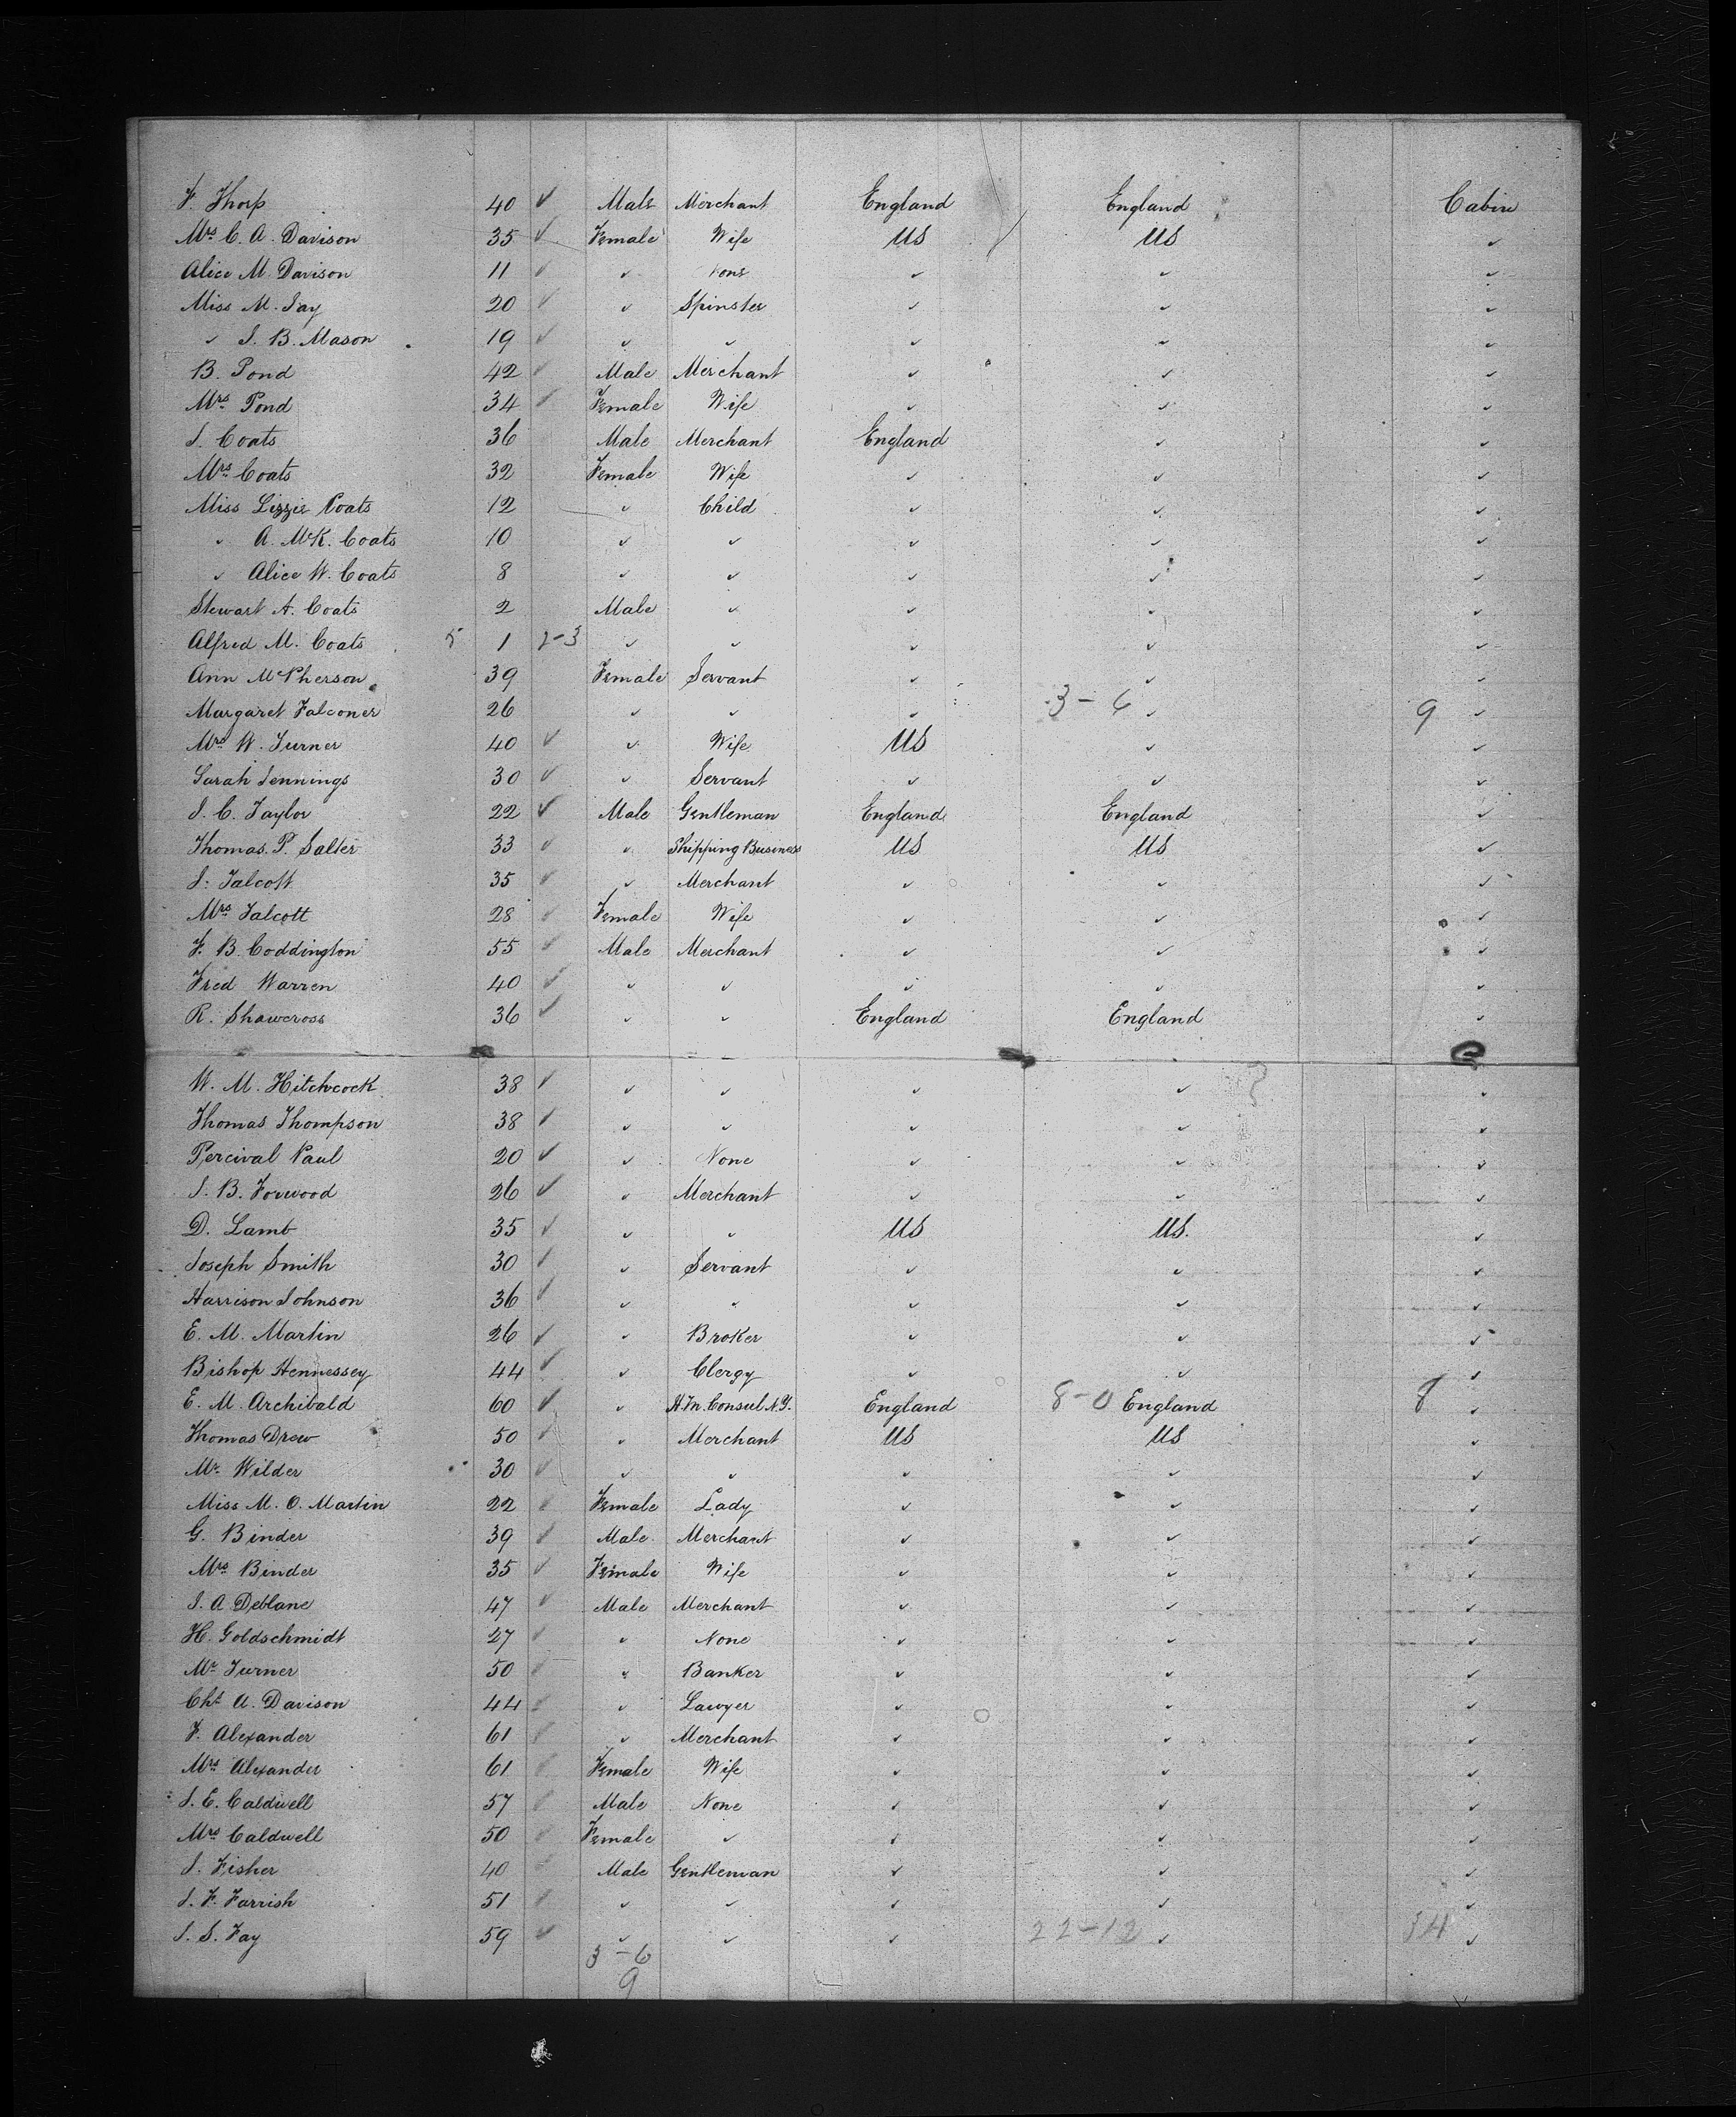 F. Thorp 40 ✓ Male Merchant England England Cabin
Mrs C. A. Davison 35 ✓ Female Wife US US ✓
Alice M. Davison 11 ✓ ✓ None ✓ ✓ ✓
Miss M. Jay 20 ✓ ✓ Spinster ✓ ✓ ✓
✓ J. B. Mason 19 ✓ ✓ ✓ ✓ ✓ ✓
B. Pond 42 ✓ Male Merchant ✓ ✓ ✓
Mrs Pond 34 ✓ Female Wife ✓ ✓ ✓
J. Coats 36 Male Merchant England ✓ ✓
Mrs Coats 32 Female Wife ✓ ✓ ✓
Miss Lizzie Coats 12 ✓ Child ✓ ✓ ✓
✓ A. McK. Coats 10 ✓ ✓ ✓ ✓ ✓
✓ Alice W. Coats 8 ✓ ✓ ✓ ✓ ✓
Stewart A. Coats 2 Male ✓ ✓ ✓ ✓
Alfred M. Coats 5 1 2-3 ✓ ✓ ✓ ✓ ✓
Ann McPherson 39 Female Servant ✓ ✓ ✓
Margaret Falconer 26 ✓ ✓ ✓ 3-6 ✓ 9 ✓
Mrs W. Turner 40 ✓ ✓ Wife US ✓ ✓
Sarah Jennings 30 ✓ ✓ Servant ✓ ✓ ✓
J. C. Taylor 22 ✓ Male Gentleman England England ✓
Thomas. P. Salter 33 ✓ ✓ Shipping Business US US ✓
J. Talcott 35 ✓ ✓ Merchant ✓ ✓ ✓
Mrs Talcott 28 ✓ Female Wife ✓ ✓ ✓
F. B. Coddington 55 ✓ Male Merchant ✓ ✓ ✓
Fred Warren 40 ✓ ✓ ✓ ✓ ✓ ✓
R. Shawcross 36 ✓ ✓ ✓ England England ✓
W. M. Hitchcock 38 ✓ ✓ ✓ ✓ ✓ ✓
Thomas Thompson 38 ✓ ✓ ✓ ✓ ✓ ✓
Percival Paul 20 ✓ ✓ None ✓ ✓ ✓
J. B. Forwood 26 ✓ ✓ Merchant ✓ ✓ ✓
D. Lamb 35 ✓ ✓ ✓ US US. ✓
Joseph Smith 30 ✓ ✓ Servant ✓ ✓ ✓
Harrison Johnson 36 ✓ ✓ ✓ ✓ ✓ ✓
E. M. Martin 26 ✓ ✓ Broker ✓ ✓ ✓
Bishop Hennessey 44 ✓ ✓ Clergy ✓ ✓ ✓
E. M. Archibald 60 ✓ ✓ H.M. Consul N.Y. England 8-0 England 8 ✓
Thomas Drew 50 ✓ ✓ Merchant US US ✓
Mr Wilder 30 ✓ ✓ ✓ ✓ ✓ ✓
Miss M. O. Martin 22 ✓ Female Lady ✓ ✓ ✓
G. Binder 39 ✓ Male Merchant ✓ ✓ ✓
Mrs Binder 35 ✓ Female Wife ✓ ✓ ✓
J. A. Deblane 47 ✓ Male Merchant ✓ ✓ ✓
H. Goldschmidt 27 ✓ ✓ None ✓ ✓ ✓
Mr Turner 50 ✓ ✓ Banker ✓ ✓ ✓
Chs A. Davison 44 ✓ ✓ Lawyer ✓ ✓ ✓
F. Alexander 61 ✓ ✓ Merchant ✓ ✓ ✓
Mrs Alexander 61 ✓ Female Wife ✓ ✓ ✓
J. E. Caldwell 57 ✓ Male None ✓ ✓ ✓
Mrs Caldwell 50 ✓ Female ✓ ✓ ✓ ✓
J. Fisher 40 ✓ Male Gentleman ✓ ✓ ✓
J. F. Farrish 51 ✓ ✓ ✓ ✓ ✓ ✓
J. S. Fay 59 ✓ ✓ ✓ ✓ 22-12 ✓ 34 ✓
3-6
9